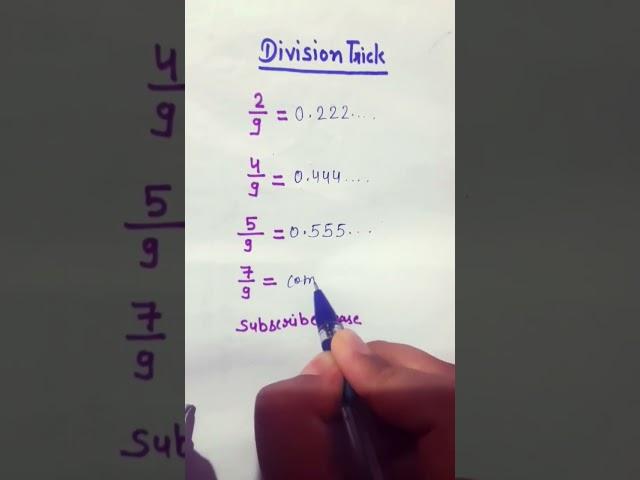 Division Trick
2/9 = 0.222....
4/9 = 0.444....
5/9 = 0.555...
7/9 = com
Subscribe
4/9
5/9
7/9
Sub